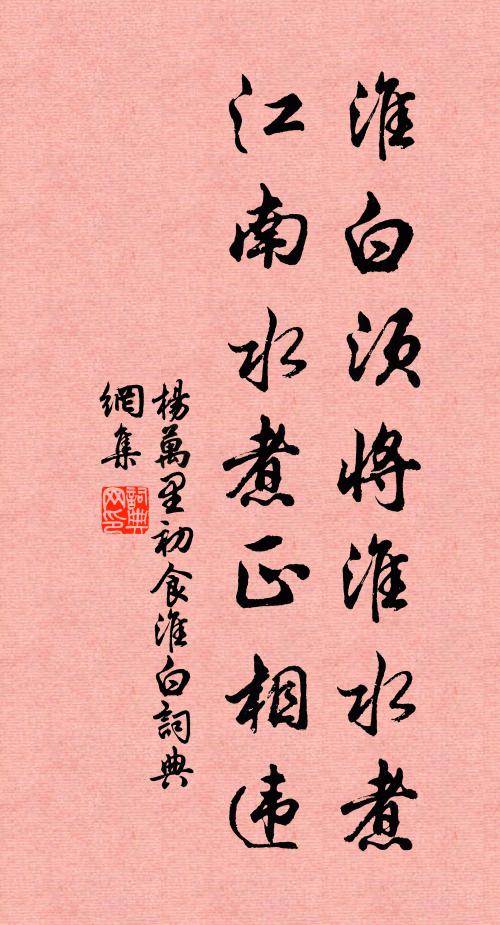 淮白须将淮水煮
江南水煮正相违
楊萬里初食淮白詞典
網集
詞典
网印